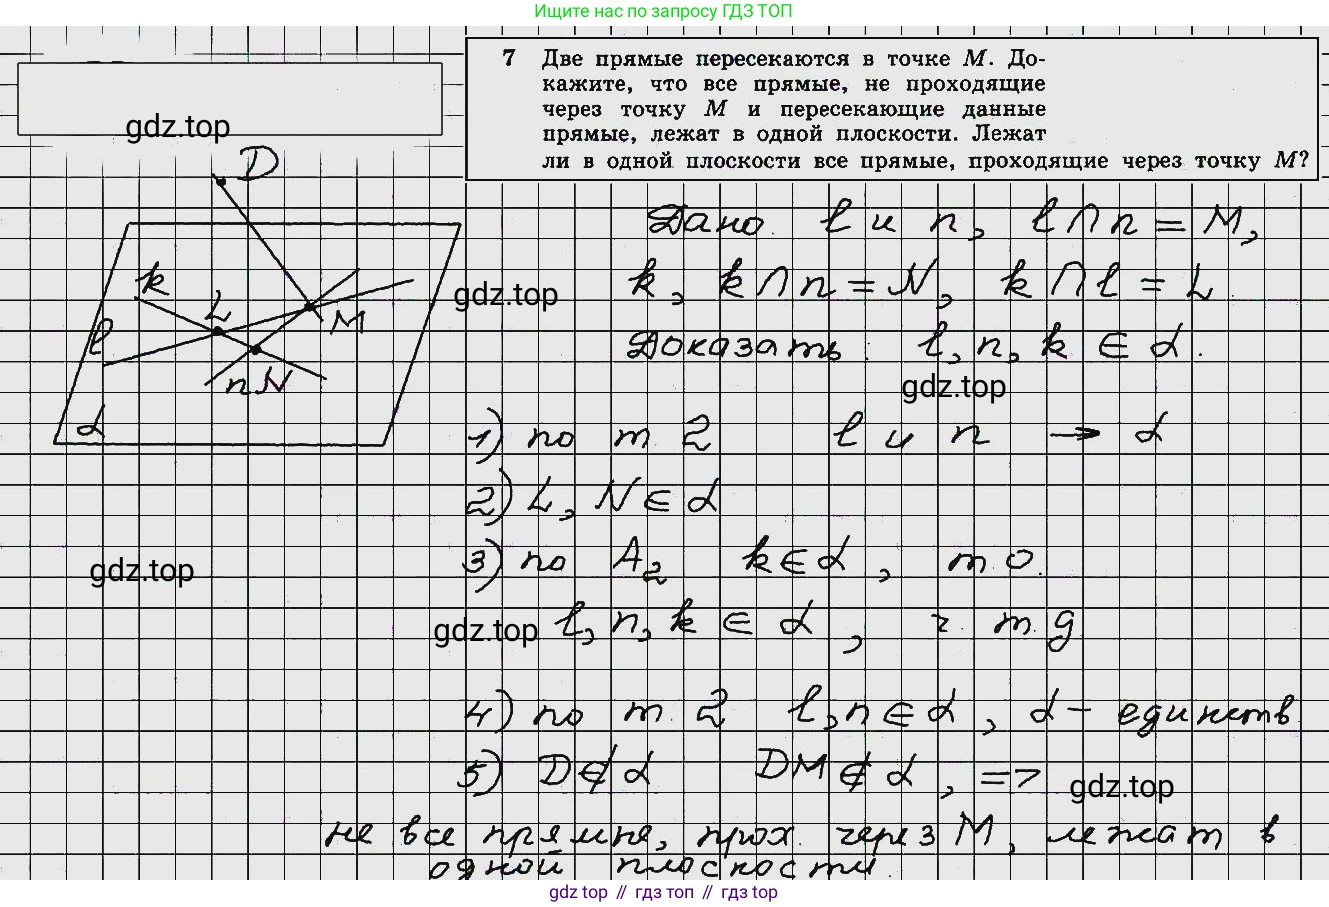 Ищите нас по запросу ГДЗ ТОП
7 Две прямые пересекаются в точке M. До-
кажите, что все прямые, не проходящие
через точку M и пересекающие данные
прямые, лежат в одной плоскости. Лежат
ли в одной плоскости все прямые, проходящие через точку M?
gdz.top
D
k
L
l
M
n N
α
Дано. l и n, l ∩ n = M,
gdz.top
k, k ∩ n = N, k ∩ l = L
Доказать: l, n, k ∈ α.
gdz.top
1) по т. 2 l и n → α
2) L, N ∈ α
3) по A₂ k ∈ α, т.о.
gdz.top
gdz.top
l, n, k ∈ α, ч. т. д
4) по т. 2 l, n ∈ α, α – единств.
5) D ∉ α DM ∉ α, =>
gdz.top
не все прямые, прох. через M, лежат в
одной плоскости.
gdz top // гдз топ // гдз top